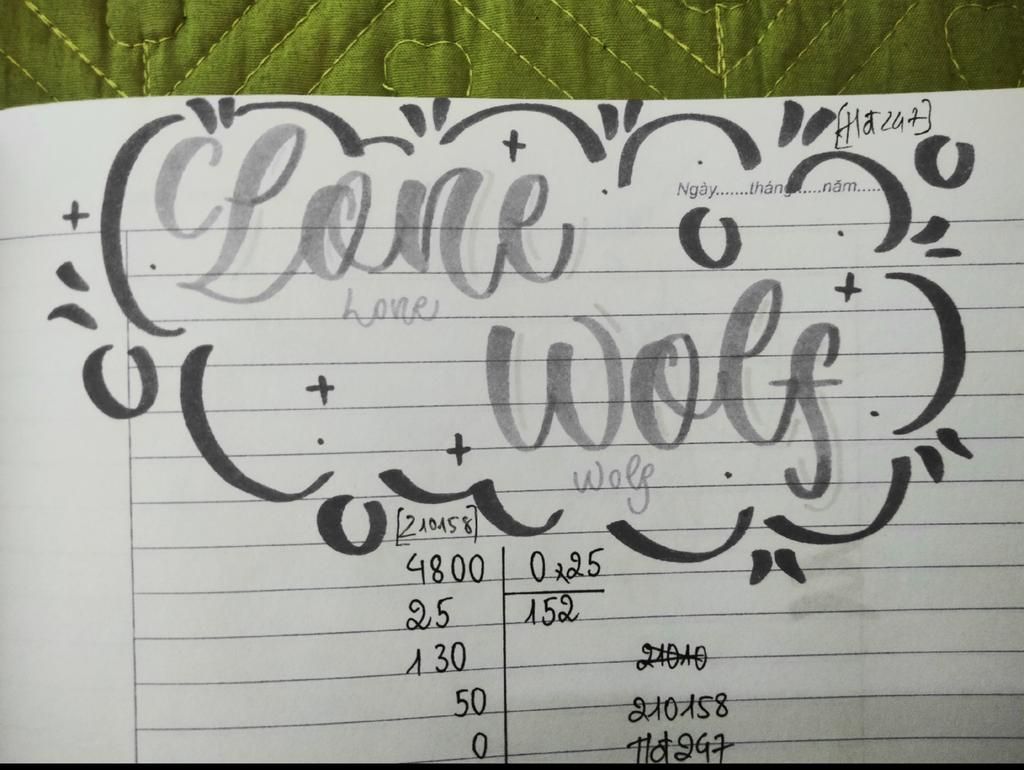 Lone
Ngày.......tháng......năm......
Lone
Wolf
Wolf
[210158]
4800 0,25
25 152
130 21010
50 210158
0